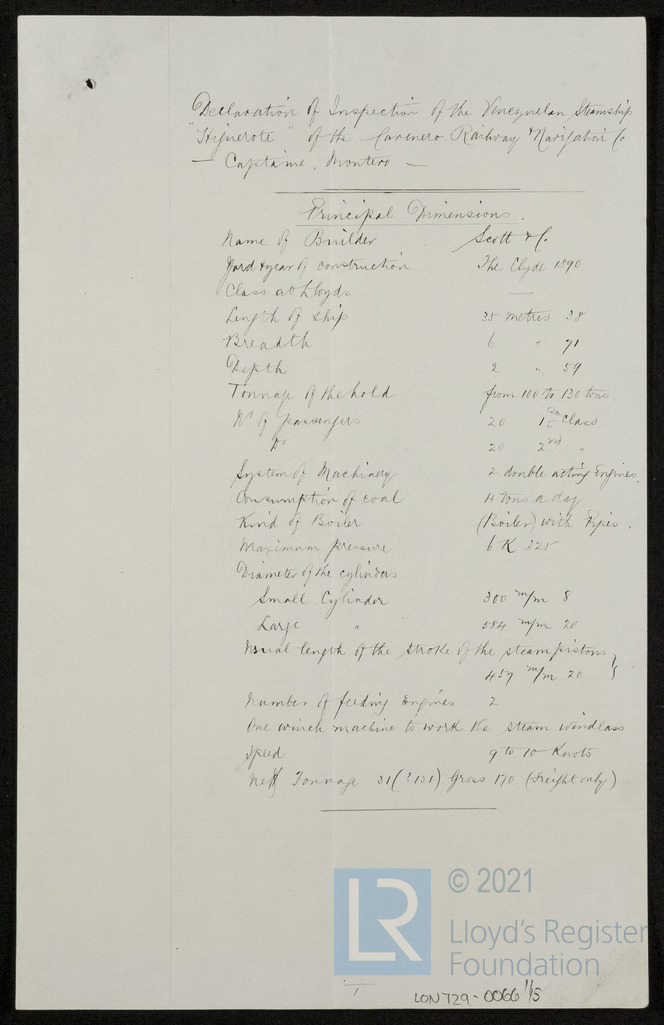 Declaration of Inspection of the Venezuelan Steamship
"Higuerote" of the Carenero Railway & Navigation Co
— Captaine, Montero —
Principal Dimensions.
Name of Builder Scott & Co.
Yard & year of construction The Clyde 1890
Class at Lloyds —
Length of ship 35 metres 38
Breadth 6 " 71
Depth 2 " 59
Tonnage of the hold from 100 to 130 tons
No of passengers 20 1st Class
Do 20 2nd "
System of Machinery 2 double acting Engines.
Consumption of coal 4 tons a day
Kind of Boiler (Boiler) with Pipes.
Maximum pressure 6 K 325
Diameter of the cylinders
Small Cylinder 300 m/m 8
Large " 584 m/m 20
Usual length of the stroke of the steam pistons }
457 m/m 20
Number of feeding Engines 2
One winch machine to work the steam windlass
Speed 9 to 10 Knots
Nett Tonnage 31 (?131) Gross 170 (freight only)
LR
© 2021
Lloyd's Register
Foundation
LON729-0066 1/5